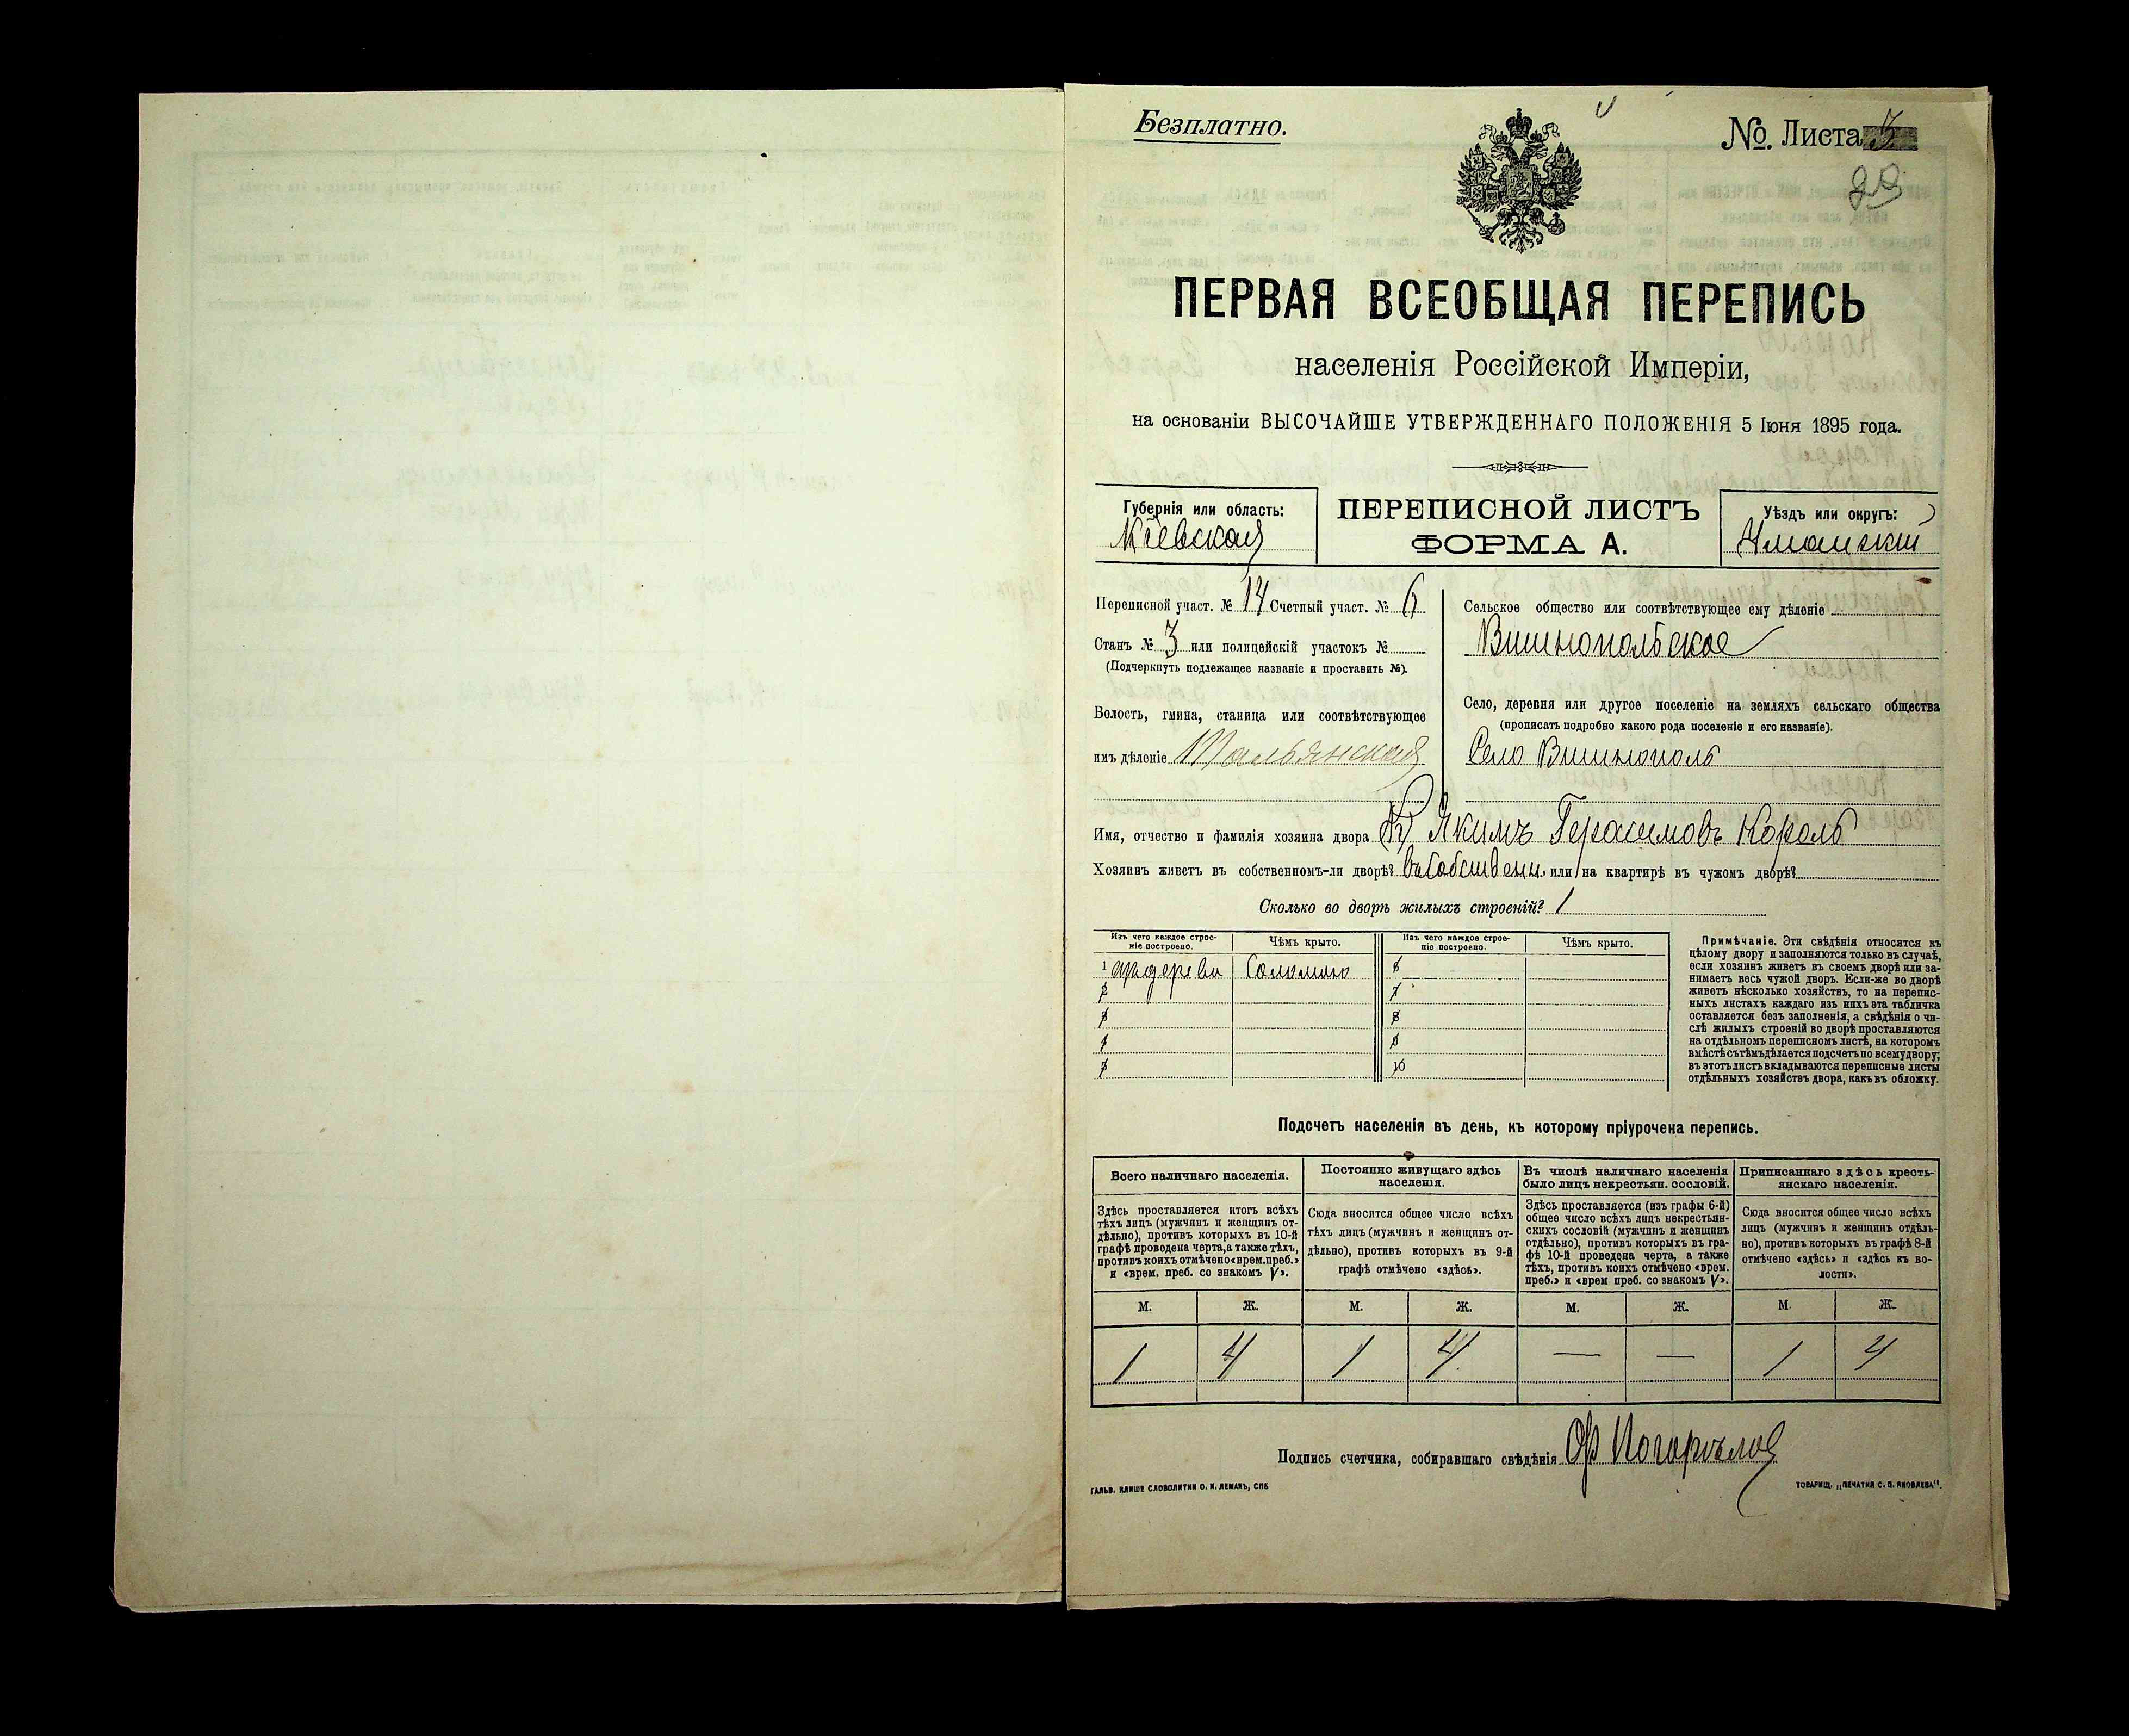 Безплатно.
№ Листа 3
ПЕРВАЯ ВСЕОБЩАЯ ПЕРЕПИСЬ
населенія Россійской Имперіи,
на основаніи ВЫСОЧАЙШЕ УТВЕРЖДЕННАГО ПОЛОЖЕНІЯ 5 Іюня 1895 года.
Губернія или область:
Кіевская
ПЕРЕПИСНОЙ ЛИСТЪ
ФОРМА А.
Уѣздъ или округъ:
Уманскій
Переписной участ. № 14 Счетный участ. № 6
Станъ № 3 или полицейскій участокъ №
(Подчеркнуть подлежащее названіе и проставить №).
Волость, гмина, станица или соотвѣтствующее
имъ дѣленіе Тальянская
Сельское общество или соотвѣтствующее ему дѣленіе
Вишнопольское
Село, деревня или другое поселеніе на земляхъ сельскаго общества
(прописать подробно какого рода поселеніе и его названіе).
Село Вишнополь
Имя, отчество и фамилія хозяина двора Якимъ Герасимовъ Король
Хозяинъ живетъ въ собственномъ-ли дворѣ? въ собственн. или на квартирѣ въ чужомъ дворѣ?
Сколько во дворѣ жилыхъ строеній? 1
Изъ чего каждое строе-
ніе построено.
Чѣмъ крыто.
Изъ чего каждое строе-
ніе построено.
Чѣмъ крыто.
1 Соломою 6
2 7
3 8
4 9
5 10
Примѣчаніе. Эти свѣдѣнія относятся къ
цѣлому двору и заполняются только въ случаѣ,
если хозяинъ живетъ въ своемъ дворѣ или за-
нимаетъ весь чужой дворъ. Если-же во дворѣ
живетъ нѣсколько хозяйствъ, то на перепис-
ныхъ листахъ каждаго изъ нихъ эта табличка
оставляется безъ заполненія, а свѣдѣнія о чи-
слѣ жилыхъ строеній во дворѣ проставляются
на отдѣльномъ переписномъ листѣ, на которомъ
вмѣстѣ съ тѣмъ дѣлается подсчетъ по всему двору;
въ этотъ листъ вкладываются переписные листы
отдѣльныхъ хозяйствъ двора, какъ въ обложку.
Подсчетъ населенія въ день, къ которому пріурочена перепись.
Всего наличнаго населенія.
Здѣсь проставляется итогъ всѣхъ
тѣхъ лицъ (мужчинъ и женщинъ от-
дѣльно), противъ которыхъ въ 10-й
графѣ проведена черта, а также тѣхъ,
противъ коихъ отмѣчено «врем. преб.»
и «врем. преб. со знакомъ V».
Постоянно живущаго здѣсь
населенія.
Сюда вносится общее число всѣхъ
тѣхъ лицъ (мужчинъ и женщинъ от-
дѣльно), противъ которыхъ въ 9-й
графѣ отмѣчено «здѣсь».
Въ числѣ наличнаго населенія
было лицъ некрестьян. сословій.
Здѣсь проставляется (изъ графы 6-й)
общее число всѣхъ лицъ некрестьян-
скихъ сословій (мужчинъ и женщинъ
отдѣльно), противъ которыхъ въ гра-
фѣ 10-й проведена черта, а также
тѣхъ, противъ коихъ отмѣчено «врем.
преб.» и «врем преб. со знакомъ V».
Приписаннаго здѣсь кресть-
янскаго населенія.
Сюда вносится общее число всѣхъ
лицъ (мужчинъ и женщинъ отдѣль-
но), противъ которыхъ въ графѣ 8-й
отмѣчено «здѣсь» и «здѣсь къ во-
лости».
М. Ж. М. Ж. М. Ж. М. Ж.
1 4 1 4 — — 1 4
Подпись счетчика, собиравшаго свѣдѣнія
ГАЛЬВ. КЛИШЕ СЛОВОЛИТНИ О. И. ЛЕМАНЪ, СПБ
ТОВАРИЩ. „ПЕЧАТНЯ С. П. ЯКОВЛЕВА".